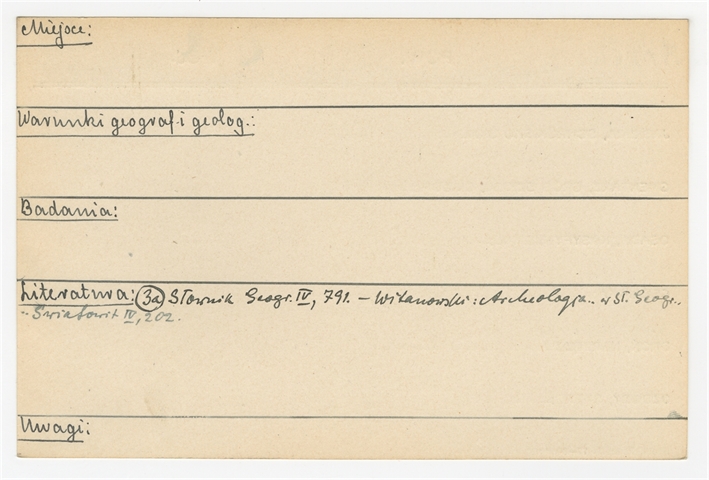 Miejsce:
Warunki geograf. i geolog.:
Badania:
Literatura: (3a) Słownik Geogr. IV, 791. – Witanowski: Archeologja.. w Sł. Geogr..
.. Światowit IV, 202.
Uwagi: